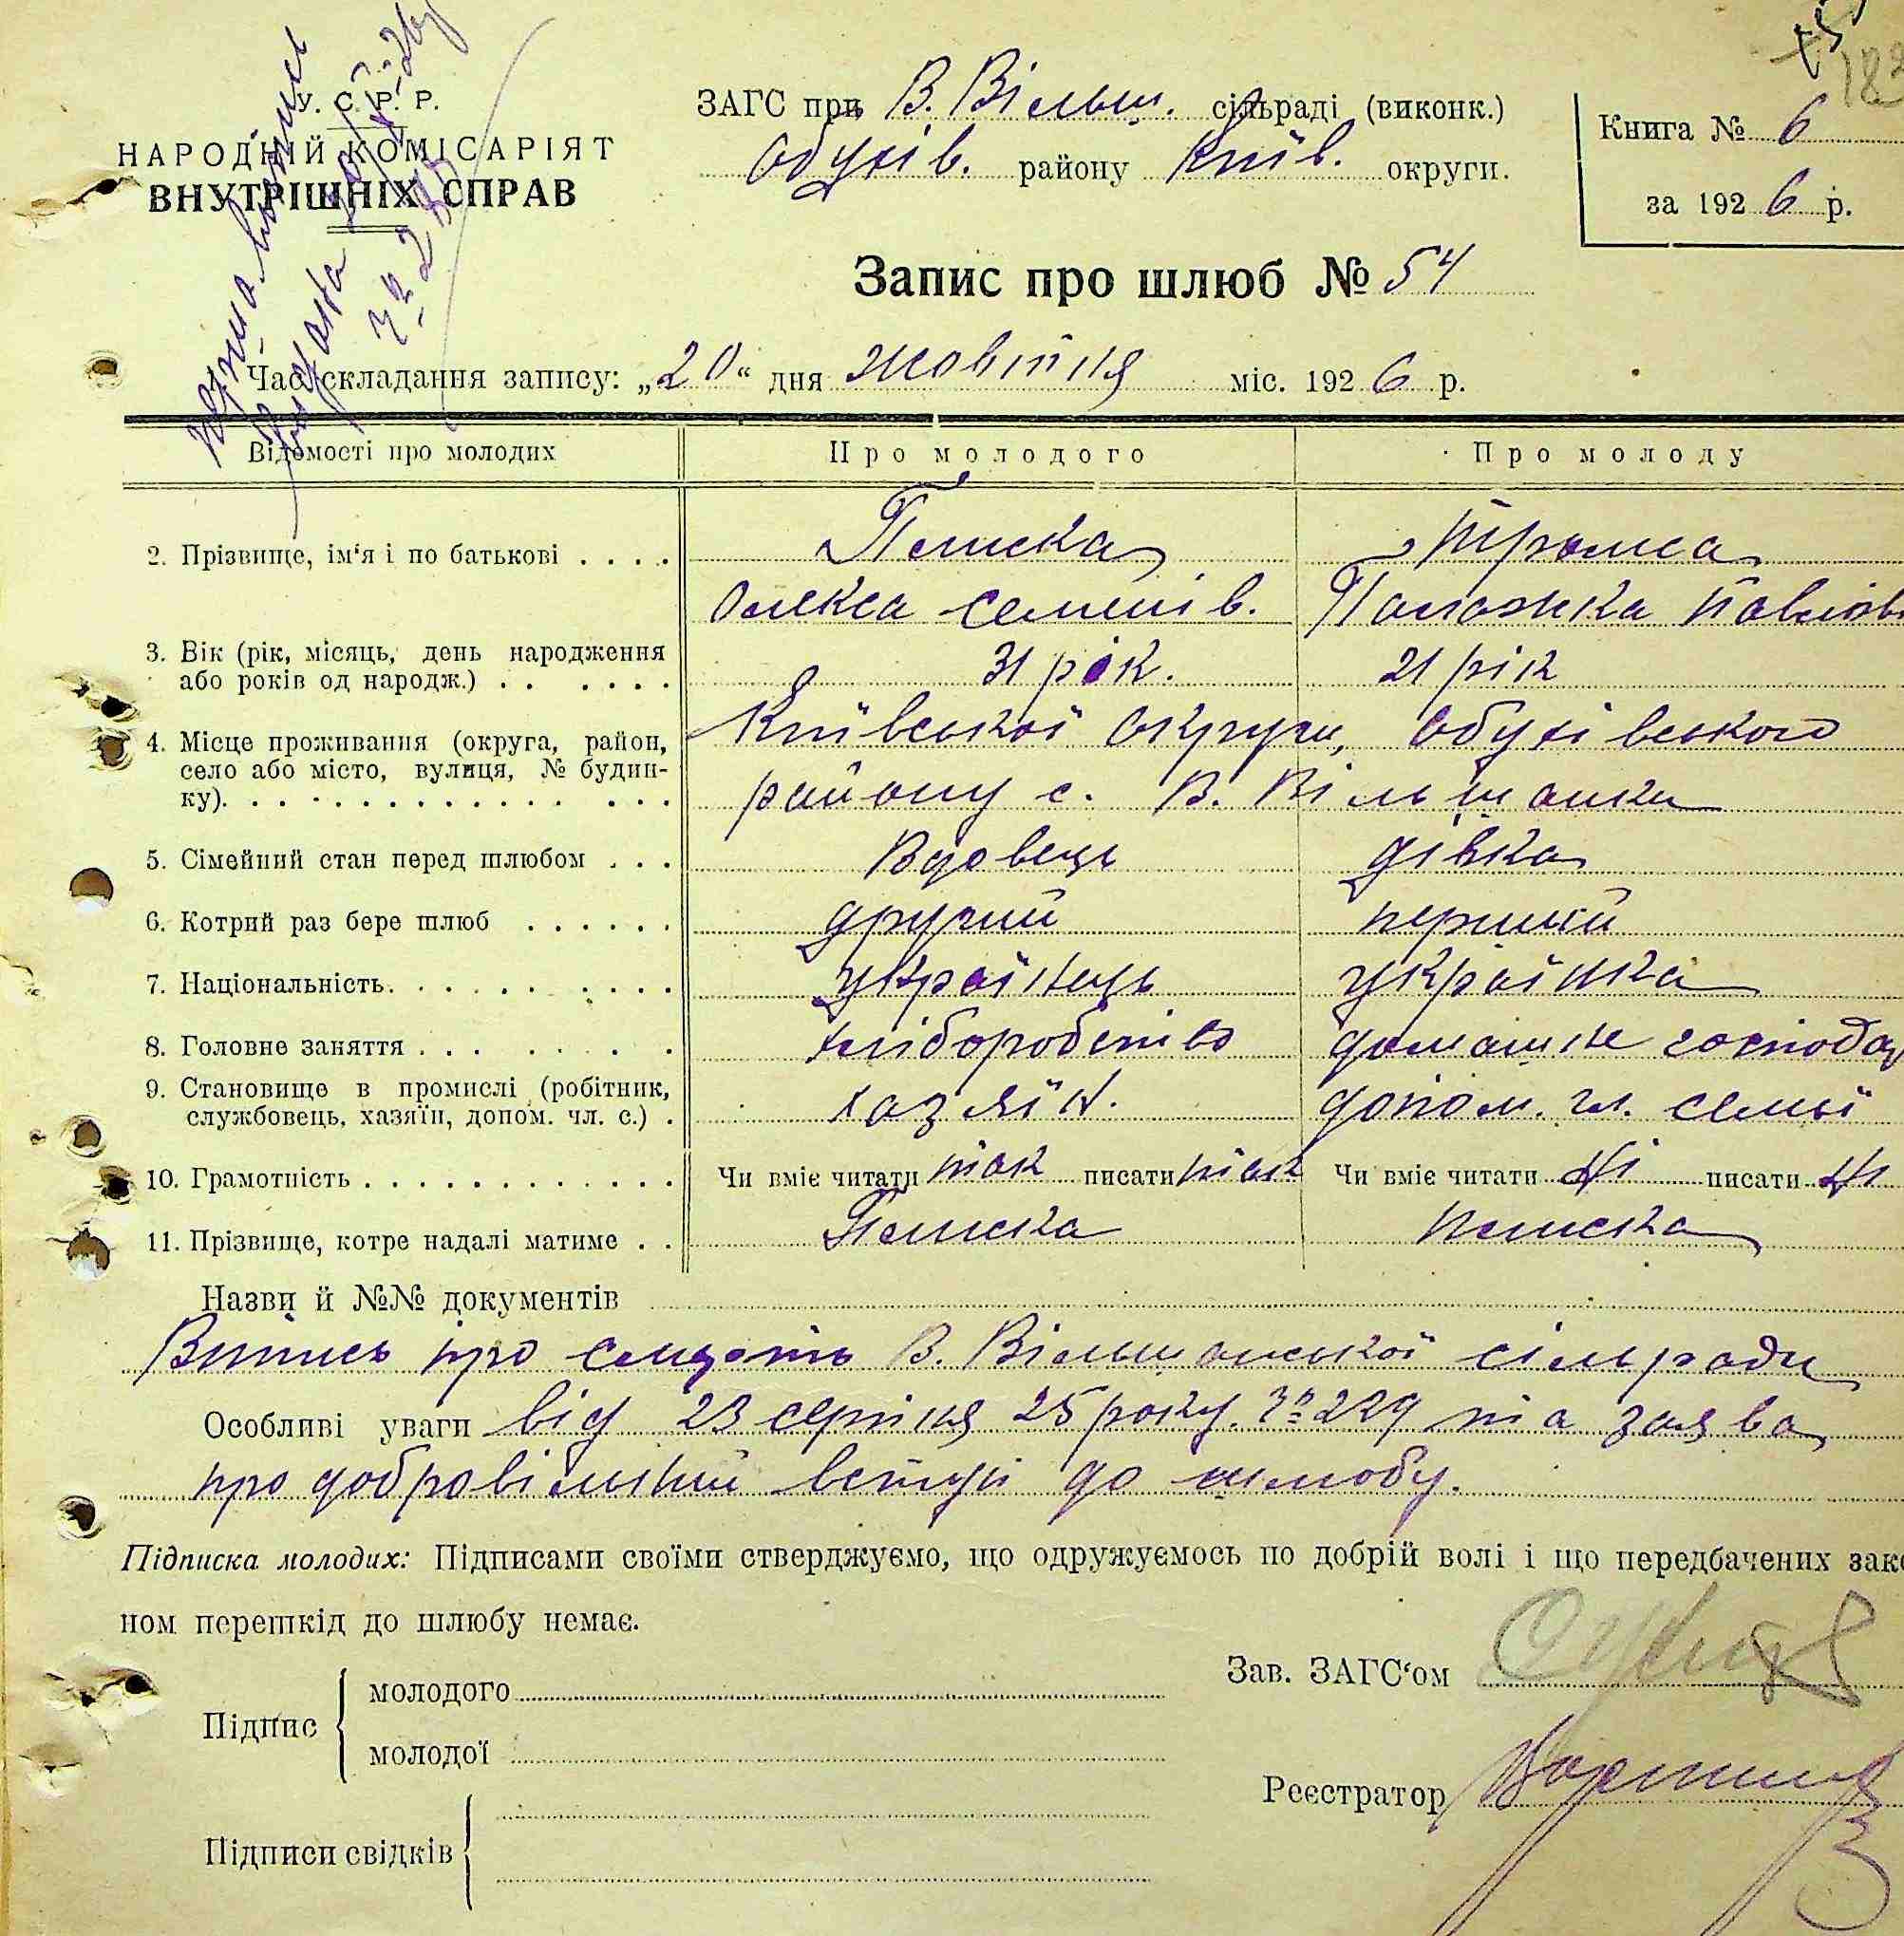 У. С. Р. Р.
НАРОДНІЙ КОМІСАРІЯТ
ВНУТРІШНІХ СПРАВ
ЗАГС при В. Вільш. сільраді (виконк.)
Обухів. району Київ. округи.
Книга № 6
за 1926 р.
Запис про шлюб № 54
Час складання запису: „20“ дня жовтня міс. 1926 р.
Відомості про молодих Про молодого Про молоду
2. Прізвище, ім‘я і по батькові . . . .
Олекса Семенів. Палажка Павлов
3. Вік (рік, місяць, день народження
або років од народж.) . . . . . . 31 рік. 21 рік
4. Місце проживання (округа, район, Київської округи, Обухівського
село або місто, вулиця, № будин-
ку). . . . . . . . . . . . . . . . району с. В. Вільшанки
5. Сімейний стан перед шлюбом . . . Вдовець дівка
6. Котрий раз бере шлюб . . . . . . другий перший
7. Національність. . . . . . . . . . українець українка
8. Головне заняття . . . . . . . . хліборобство домашнє господар
9. Становище в промислі (робітник,
службовець, хазяїн, допом. чл. с.) . хазяїн. допом. чл. семьї
10. Грамотність . . . . . . . . . . . . Чи вміє читати так писати так Чи вміє читати ні писати ні
11. Прізвище, котре надалі матиме . .
Назви й №№ документів
Випись про смерть В. Вільшанської сільради
Особливі уваги від 23 серпня 25 року. № 229 та заява
про добровільний вступ до шлюбу.
Підписка молодих: Підписами своїми стверджуємо, що одружуємось по добрій волі і що передбачених зако
ном перешкід до шлюбу немає.
Зав. ЗАГС‘ом
Підпис
молодого
молодої
Реєстратор
Підписи свідків